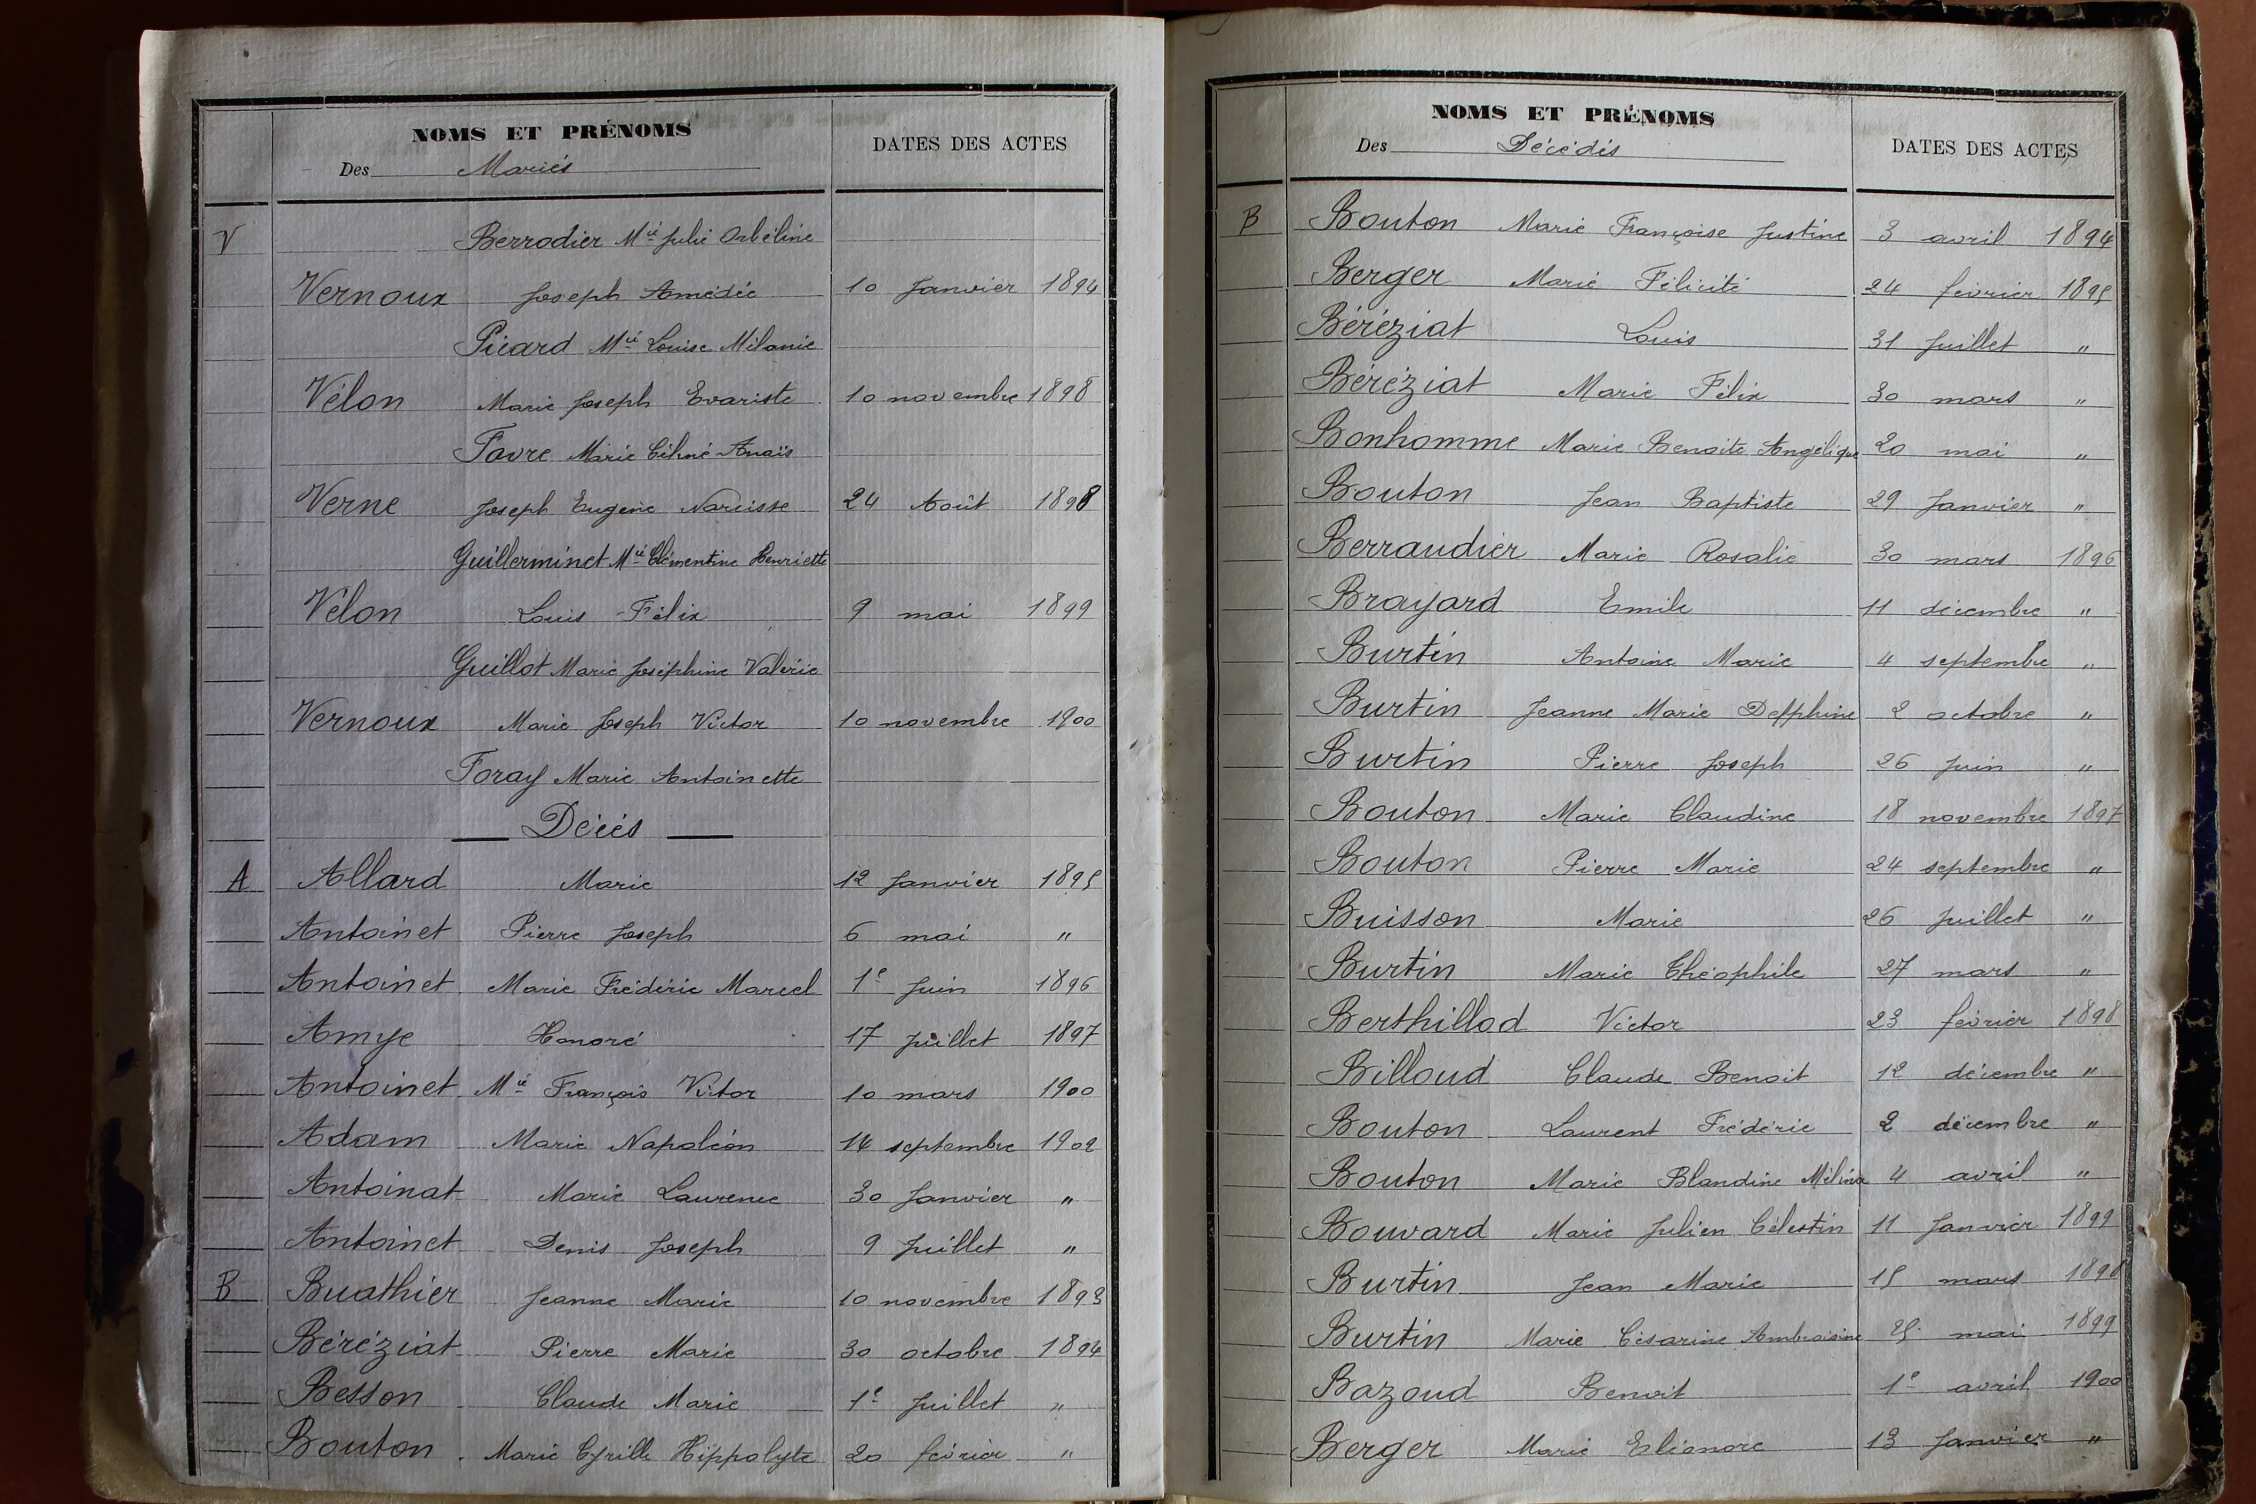 NOMS ET PRÉNOMS
Des Mariés
DATES DES ACTES
V Berrodier Mie Julie Orbéline
Vernoux Joseph Amédée 10 Janvier 1894
Picard Mie Louise Mélanie
Vélon Marie Joseph Evariste 10 novembre 1898
Favre Marie Céline Anaïs
Verne Joseph Eugène Narcisse 24 Août 1898
Guillerminet Mie Clémentine Henriette
Vélon Louis Félix 9 mai 1899
Guillot Marie Joséphine Valérie
Vernoux Marie Joseph Victor 10 novembre 1900
Foray Marie Antoinette
Décès
A Allard Marie 12 Janvier 1895
Antoinet Pierre Joseph 6 mai "
Antoinet Marie Frédéric Marcel 1e Juin 1896
Amye Honoré 17 Juillet 1897
Antoinet Mie François Victor 10 mars 1900
Adam Marie Napoléon 14 septembre 1902
Antoinat Marie Laurence 30 Janvier "
Antoinet Denis Joseph 9 Juillet "
B Buathier Jeanne Marie 10 novembre 1893
Béréziat Pierre Marie 30 octobre 1894
Besson Claude Marie 1e Juillet "
Bouton Marie Cyrille Hippolyte 20 février "
NOMS ET PRÉNOMS
Des Décédés
DATES DES ACTES
B Bouton Marie Françoise Justine 3 avril 1894
Berger Marie Félicité 24 février 1895
Béréziat Louis 31 Juillet "
Béréziat Marie Félix 30 mars "
Bonhomme Marie Benoite Angélique 20 mai "
Bouton Jean Baptiste 29 Janvier "
Berraudier Marie Rosalie 30 mars 1896
Brayard Emile 11 décembre "
Burtin Antoine Marie 4 septembre "
Burtin Jeanne Marie Delphine 2 octobre "
Burtin Pierre Joseph 26 Juin "
Bouton Marie Claudine 18 novembre 1897
Bouton Pierre Marie 24 septembre "
Buisson Marie 26 Juillet "
Burtin Marie Théophile 27 mars "
Berthillod Victor 23 février 1898
Billoud Claude Benoit 12 décembre "
Bouton Laurent Frédéric 2 décembre "
Bouton Marie Blandine Mélina 4 avril "
Bouvard Marie Julien Célestin 11 Janvier 1899
Burtin Jean Marie 15 mars 1898
Burtin Marie Césarine Ambroisine mai 1899
Bazoud Benoit 1e avril 1900
Berger Marie Eléonore 13 Janvier "